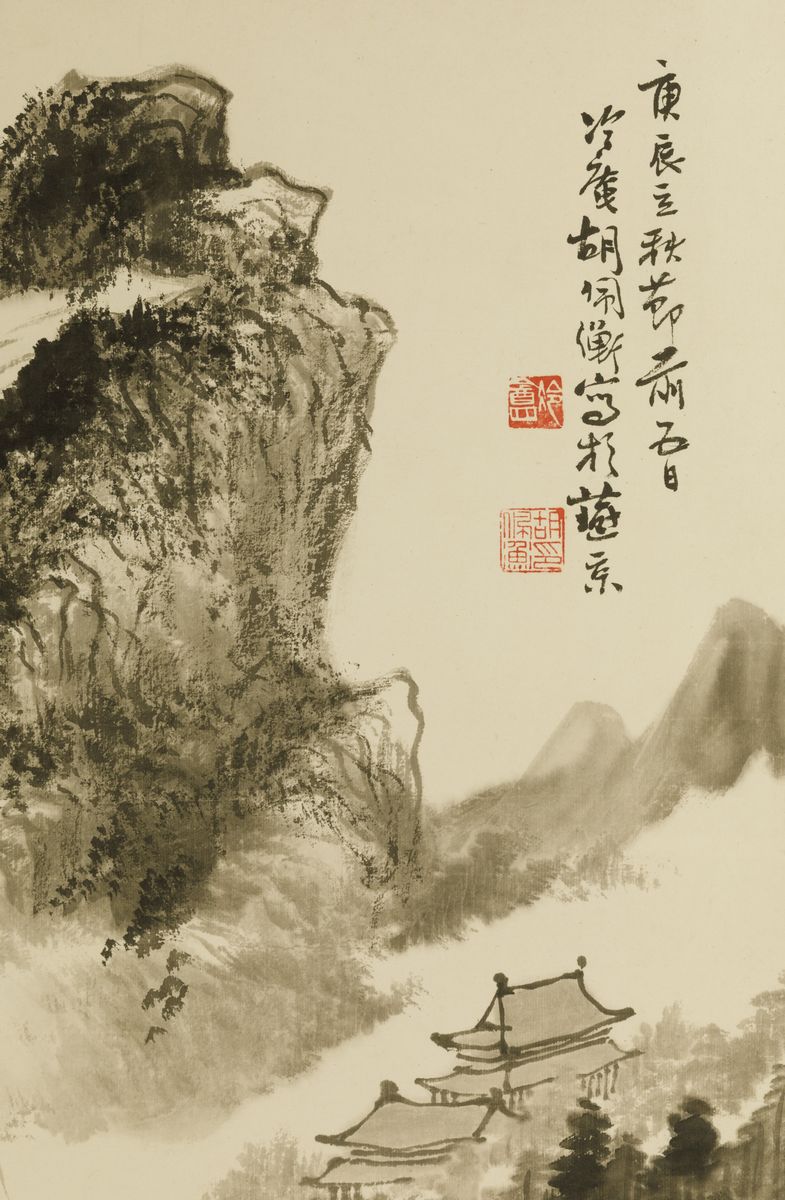 庚辰立秋節前五日
冷庵胡佩衡寫於燕京
冷盦
胡佩衡印